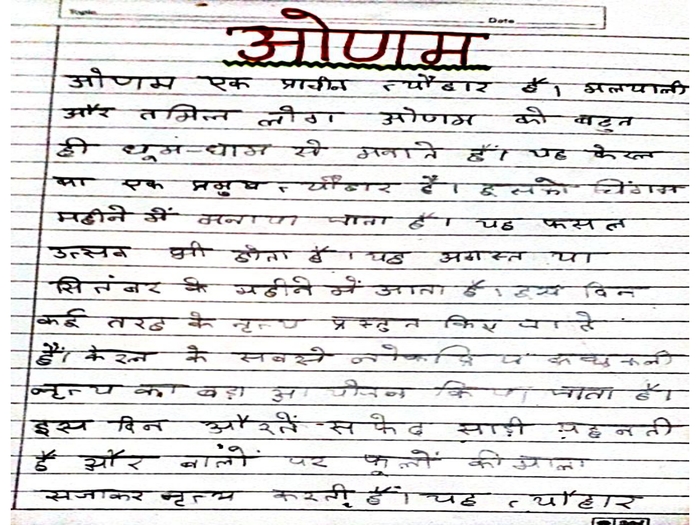 Date
ओणम
ओणम एक प्राचीन त्यौहार है। मलयाली
और तमिल लोग ओणम को बहुत
ही धूम-धाम से मनाते हैं। यह केरल
का एक प्रमुख त्यौहार है। इसको चिंगम
महीने में मनाया जाता है। यह फसल
उत्सव भी होता है। यह अगस्त या
सितंबर के महीने में आता है। इस दिन
कई तरह के नृत्य प्रस्तुत किए जाते
हैं। केरल के सबसे लोकप्रिय कथकली
नृत्य का बड़ा आयोजन किया जाता है।
इस दिन औरतें सफेद साड़ी पहनती
है और बालों पर फूलों की माला
सजाकर नृत्य करती हैं। यह त्यौहार